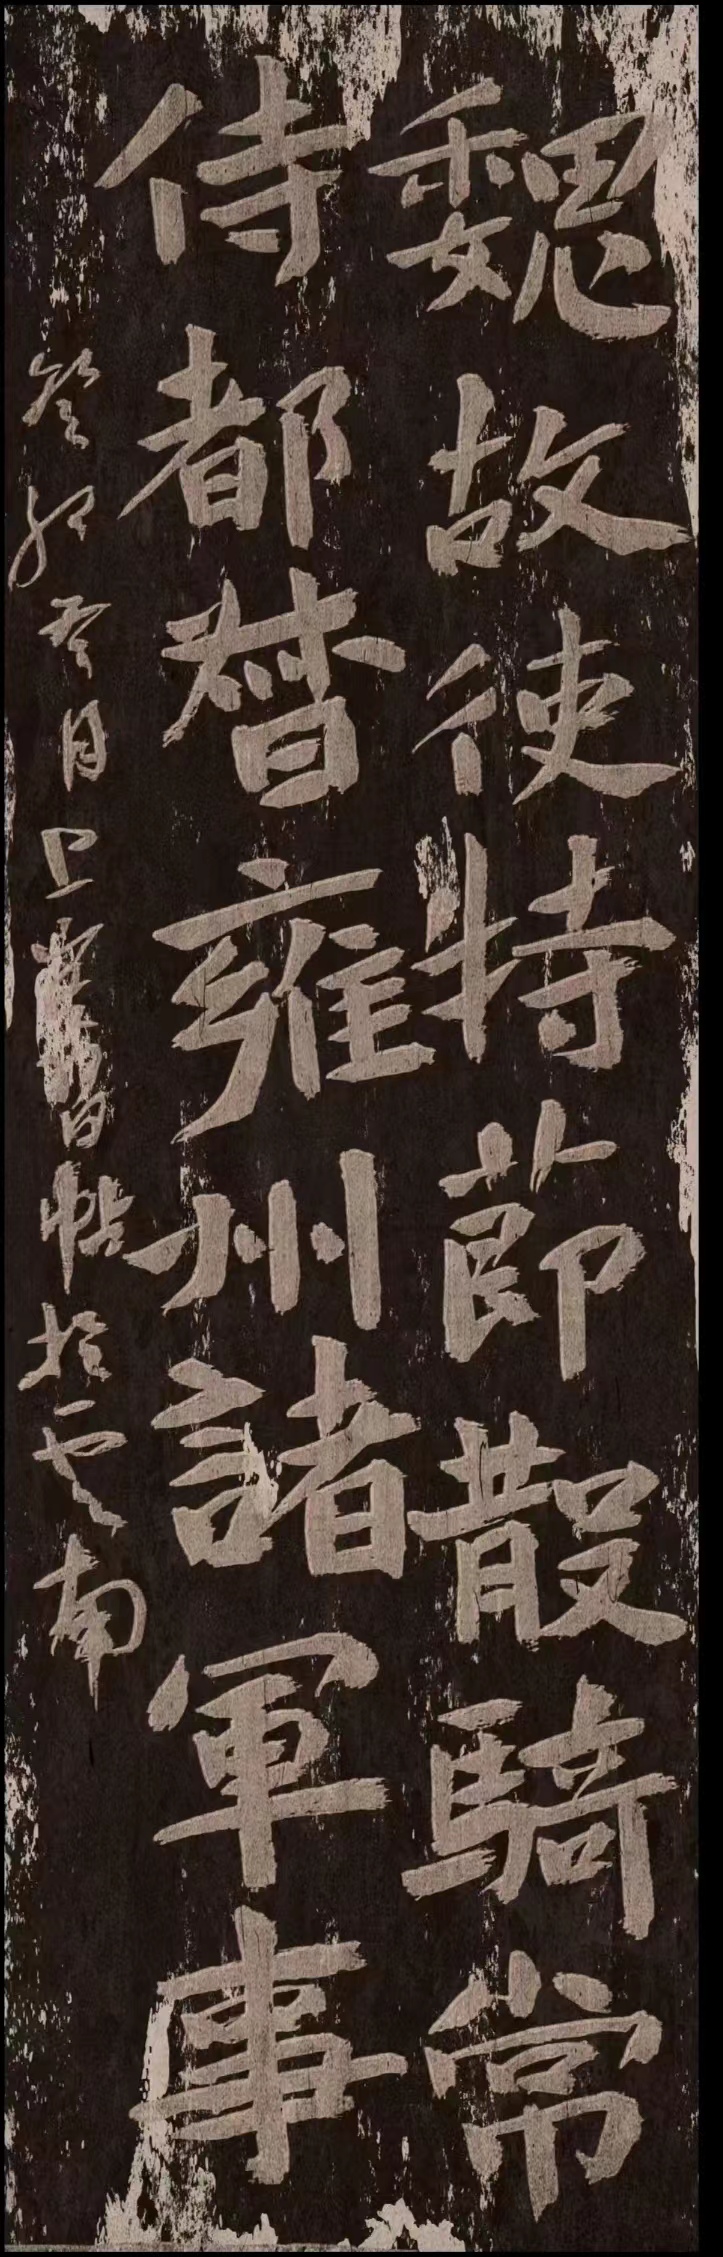 魏故使持節散騎常
侍都督雍州諸軍事
癸卯月上習帖於雲南